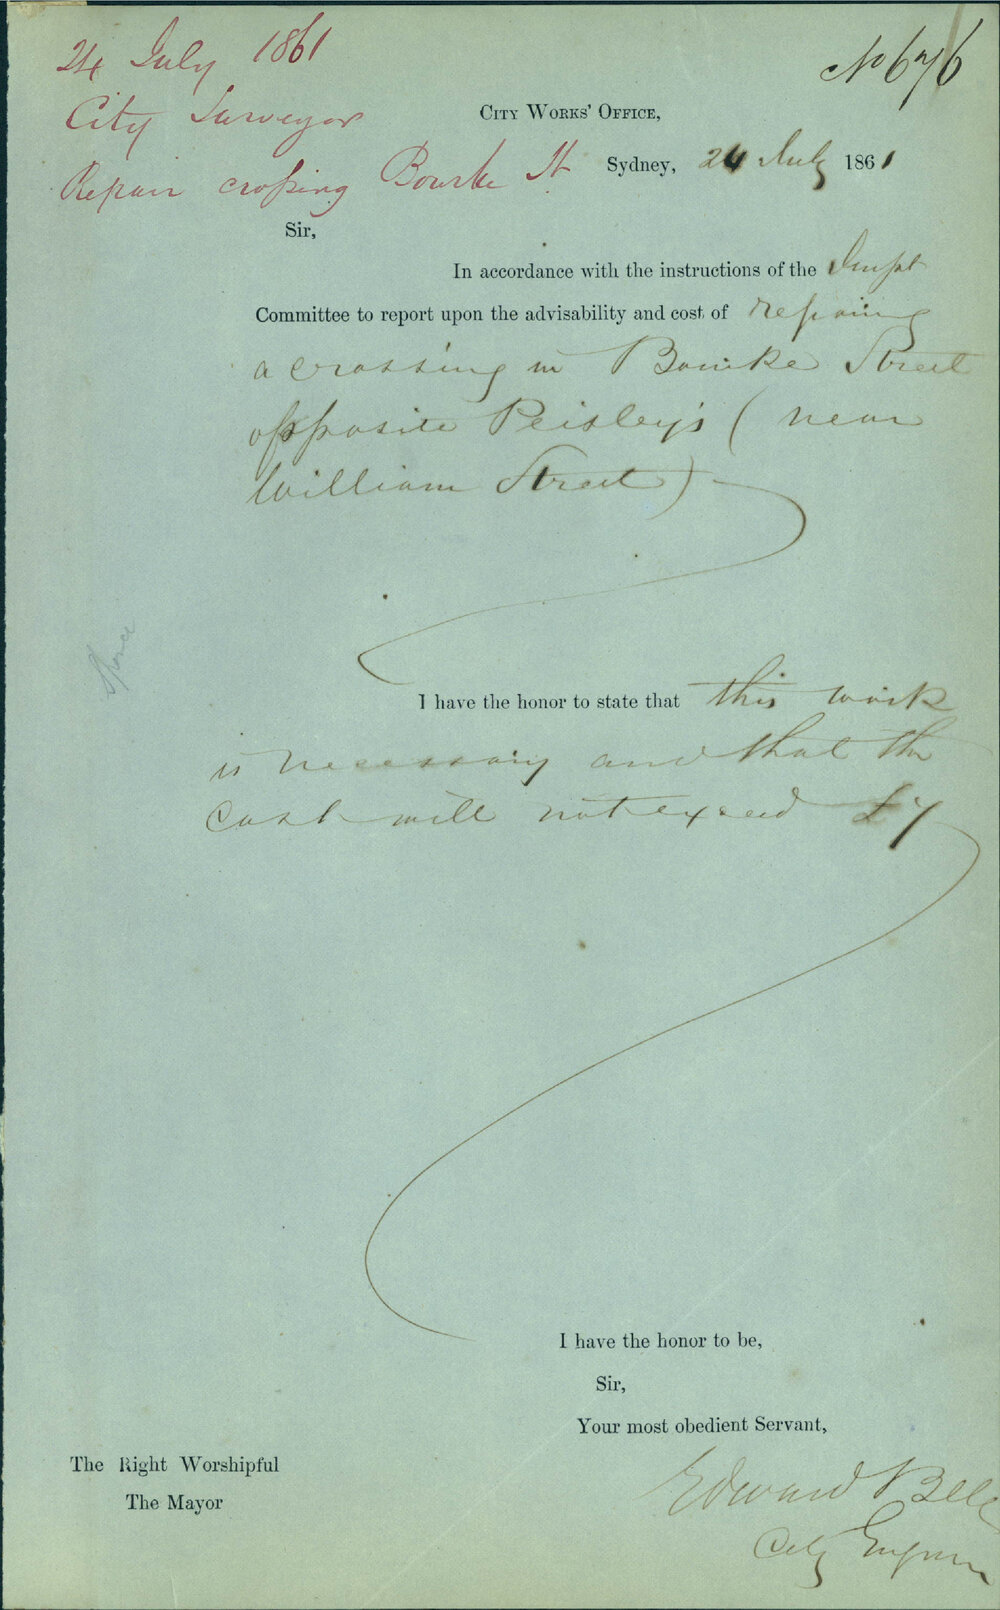 24 July 1861
City Surveyor
Repair crossing Bourke St
No 676
CITY WORKS' OFFICE,
Sydney, 24 July 1861
Sir,
In accordance with the instructions of the Impt
Committee to report upon the advisability and cost of repairing
a crossing in Bourke Street
opposite Peisley's (near
William Street)
Spence
I have the honor to state that this work
is necessary and that the
cost will not exceed £7
I have the honor to be,
Sir,
Your most obedient Servant,
Edward Bell
City Engineer
The Right Worshipful
The Mayor